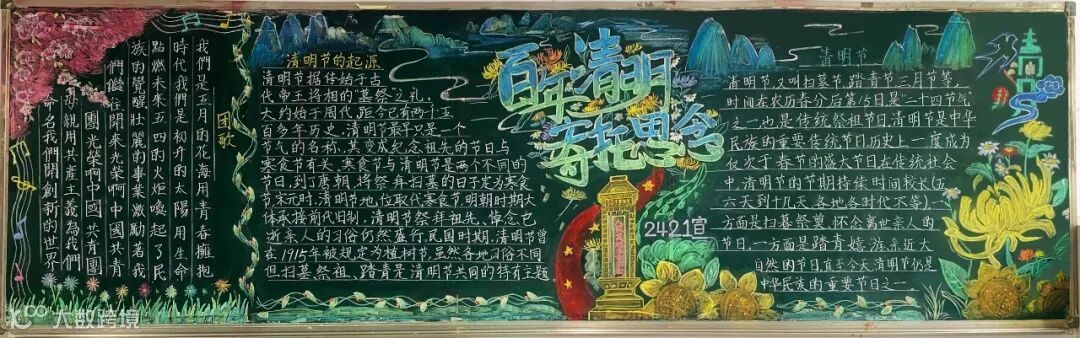 团歌
我們是五月的花海用青春擁抱
時代我們是初升的太陽用生命
點燃未來五四的火炬喚起了民
族的覺醒壯麗的事業激勵着我
們繼往開來光榮啊中國共青
團光榮啊中國共青團
母親用共產主義為我們
命名我們開創新的世界
清明节的起源
清明节据传始于古
代帝王将相的"墓祭"之礼,
大约始于周代,距今已有两千五
百多年历史,清明最开只是一个
节气的名称,其变成纪念祖先的节日与
寒食节有关,寒食节与清明节是两个不同的
节日,到了唐朝,将祭拜扫墓的日子定为寒食
节宋元时,清明节地位取代寒食节,明朝时期大
体承接前代旧制,清明节祭拜祖先、悼念已
逝亲人的习俗仍然盛行,民国时期,清明节曾
在1915年被规定为植树节,虽然各地习俗不同
但扫墓祭祖、踏青是清明节共同的特有主题
百年清明
寄托思念
2421宣
清明节
清明节,又叫扫墓节,踏青节三月节等,
时间在农历春分后第15日是二十四节气
之一也是传统祭祖节日,清明节是中华
民族的重要传统节日历史上一度成为
仅次于春节的盛大节日在传统社会
中,清明节的节期持续时间较长(五
六天到十几天,各地各时代不等)一
方面是扫墓祭奠,怀念离世亲人的
节日,一方面是踏青嬉游亲近大
自然的节日,直至今天清明节仍是
中华民族的重要节日之一
大数跨境